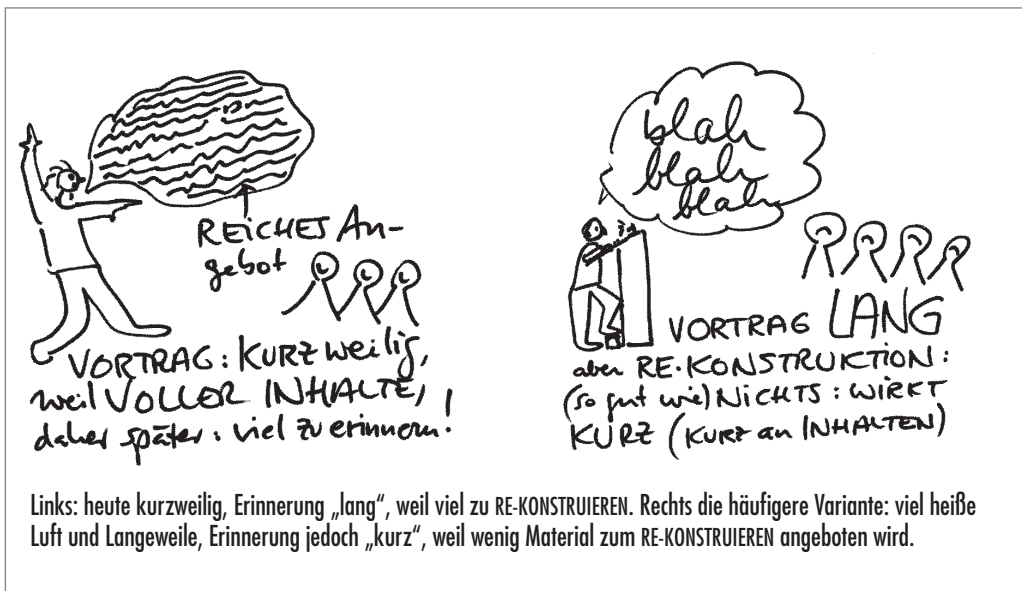 REICHES An-
gebot
VORTRAG: KURZweilig,
weil VOLLER INHALTE,
daher später: viel zu erinnern!
blah
blah
blah
VORTRAG LANG
aber RE-KONSTRUKTION:
(so gut wie) NICHTS: WIRKT
KURZ (KURZ an INHALTEN)
Links: heute kurzweilig, Erinnerung „lang“, weil viel zu RE-KONSTRUIEREN. Rechts die häufigere Variante: viel heiße
Luft und Langeweile, Erinnerung jedoch „kurz“, weil wenig Material zum RE-KONSTRUIEREN angeboten wird.